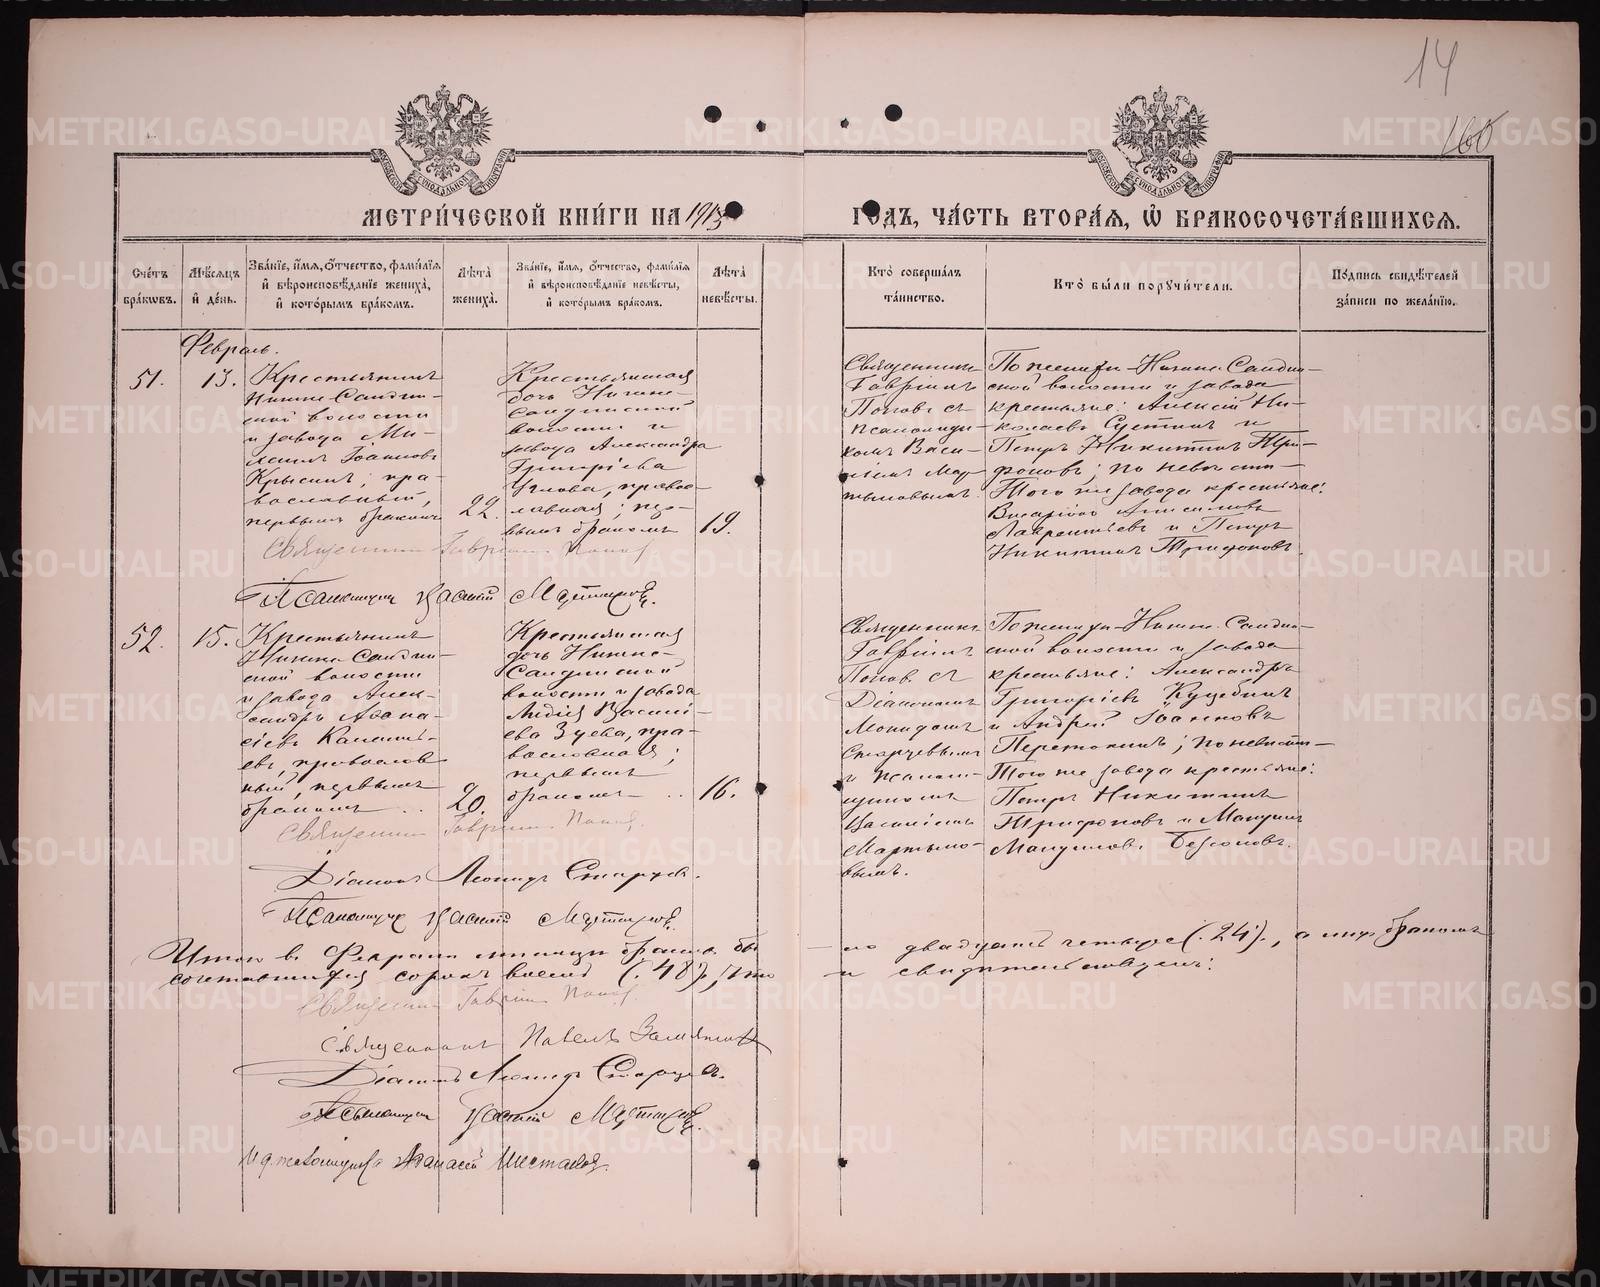 14
160
МЕТРИ́ЧЕСКОЙ КНИ́ГИ НА 1913 ГОДЪ, ЧА́СТЬ ВТОРА́Я, Ѡ БРАКОСОЧЕТА́ВШИХСЯ.
Счетъ браковъ.
Мѣсяцъ и день.
Званіе, имя, отчество, фамилія и вѣроисповѣданіе жениха, и которымъ бракомъ.
Лѣта жениха.
Званіе, имя, отчество, фамилія и вѣроисповѣданіе невѣсты, и которымъ бракомъ.
Лѣта невѣсты.
Кто совершалъ таинство.
Кто были поручители.
Подпись свидѣтелей записи по желанію.
Февраль.
51.
13.
Крестьянинъ
Нижне-Салдин-
ской волости
и завода Ми-
хаилъ Іоанновъ
Крысинъ, пра-
вославный,
первымъ бракомъ
22.
Крестьянская
дочь Нижне-
салдинской
волости и
завода Александра
Григоріева
Углова, правос-
лавная; пер-
вымъ бракомъ
19.
Священникъ
Гавріилъ
Поповъ съ
псаломщи-
комъ Васи-
ліемъ Мар-
тыновымъ.
По женихѣ-Нижне-Салдин-
ской волости и завода
крестьяне: Алексій Ни-
колаевъ Сустинъ и
Петръ Никитинъ Три-
фоновъ; по невѣстѣ-
Того же завода крестьяне:
Виссаріонъ Анисимовъ
Лаврентьевъ и Петръ
Никитинъ Трифоновъ.
Священникъ Гавріилъ Поповъ
Псаломщикъ Василій Мартыновъ.
52.
15.
Крестьянинъ
Нижне-Салдин-
ской волости
и завода Алек-
сандръ Аѳана-
сіевъ
православ
ный, первымъ
бракомъ
20.
Крестьянская
дочь Нижне-
Салдинской
волости и завода
Лидія Василі-
ева Зуева, пра-
вославная;
первымъ
бракомъ
16.
Священникъ
Гавріилъ
Поповъ съ
Діакономъ
Леонидомъ
Старцевымъ
и псалом-
щикомъ
Василіемъ
Мартыно-
вымъ.
По женихѣ-Нижне-Салдин-
ской волости и завода
крестьяне: Александръ
Григоріевъ
и Андрей Іоанновъ
по невѣстѣ-
Того же завода крестьяне:
Петръ Никитинъ
Трифоновъ и
Безсоновъ.
Священникъ Гавріилъ Поповъ.
Діаконъ Леонидъ Старцевъ.
Псаломщикъ Василій Мартыновъ.
Итого в Февралѣ мѣсяцѣ браковъ бы-ло двадцать четыре (.24)., а лицъ бракомъ
сочетавшихся сорокъ восемь (.48)., что и свидѣтельствуемъ:
Священникъ Гавріилъ Поповъ
Священникъ Павелъ
Діаконъ Леонидъ Старцевъ.
Псаломщикъ Василій Мартыновъ.
И. д. псаломщика Аѳанасій Шестаковъ.
METRIKI.GASO-URAL.RU